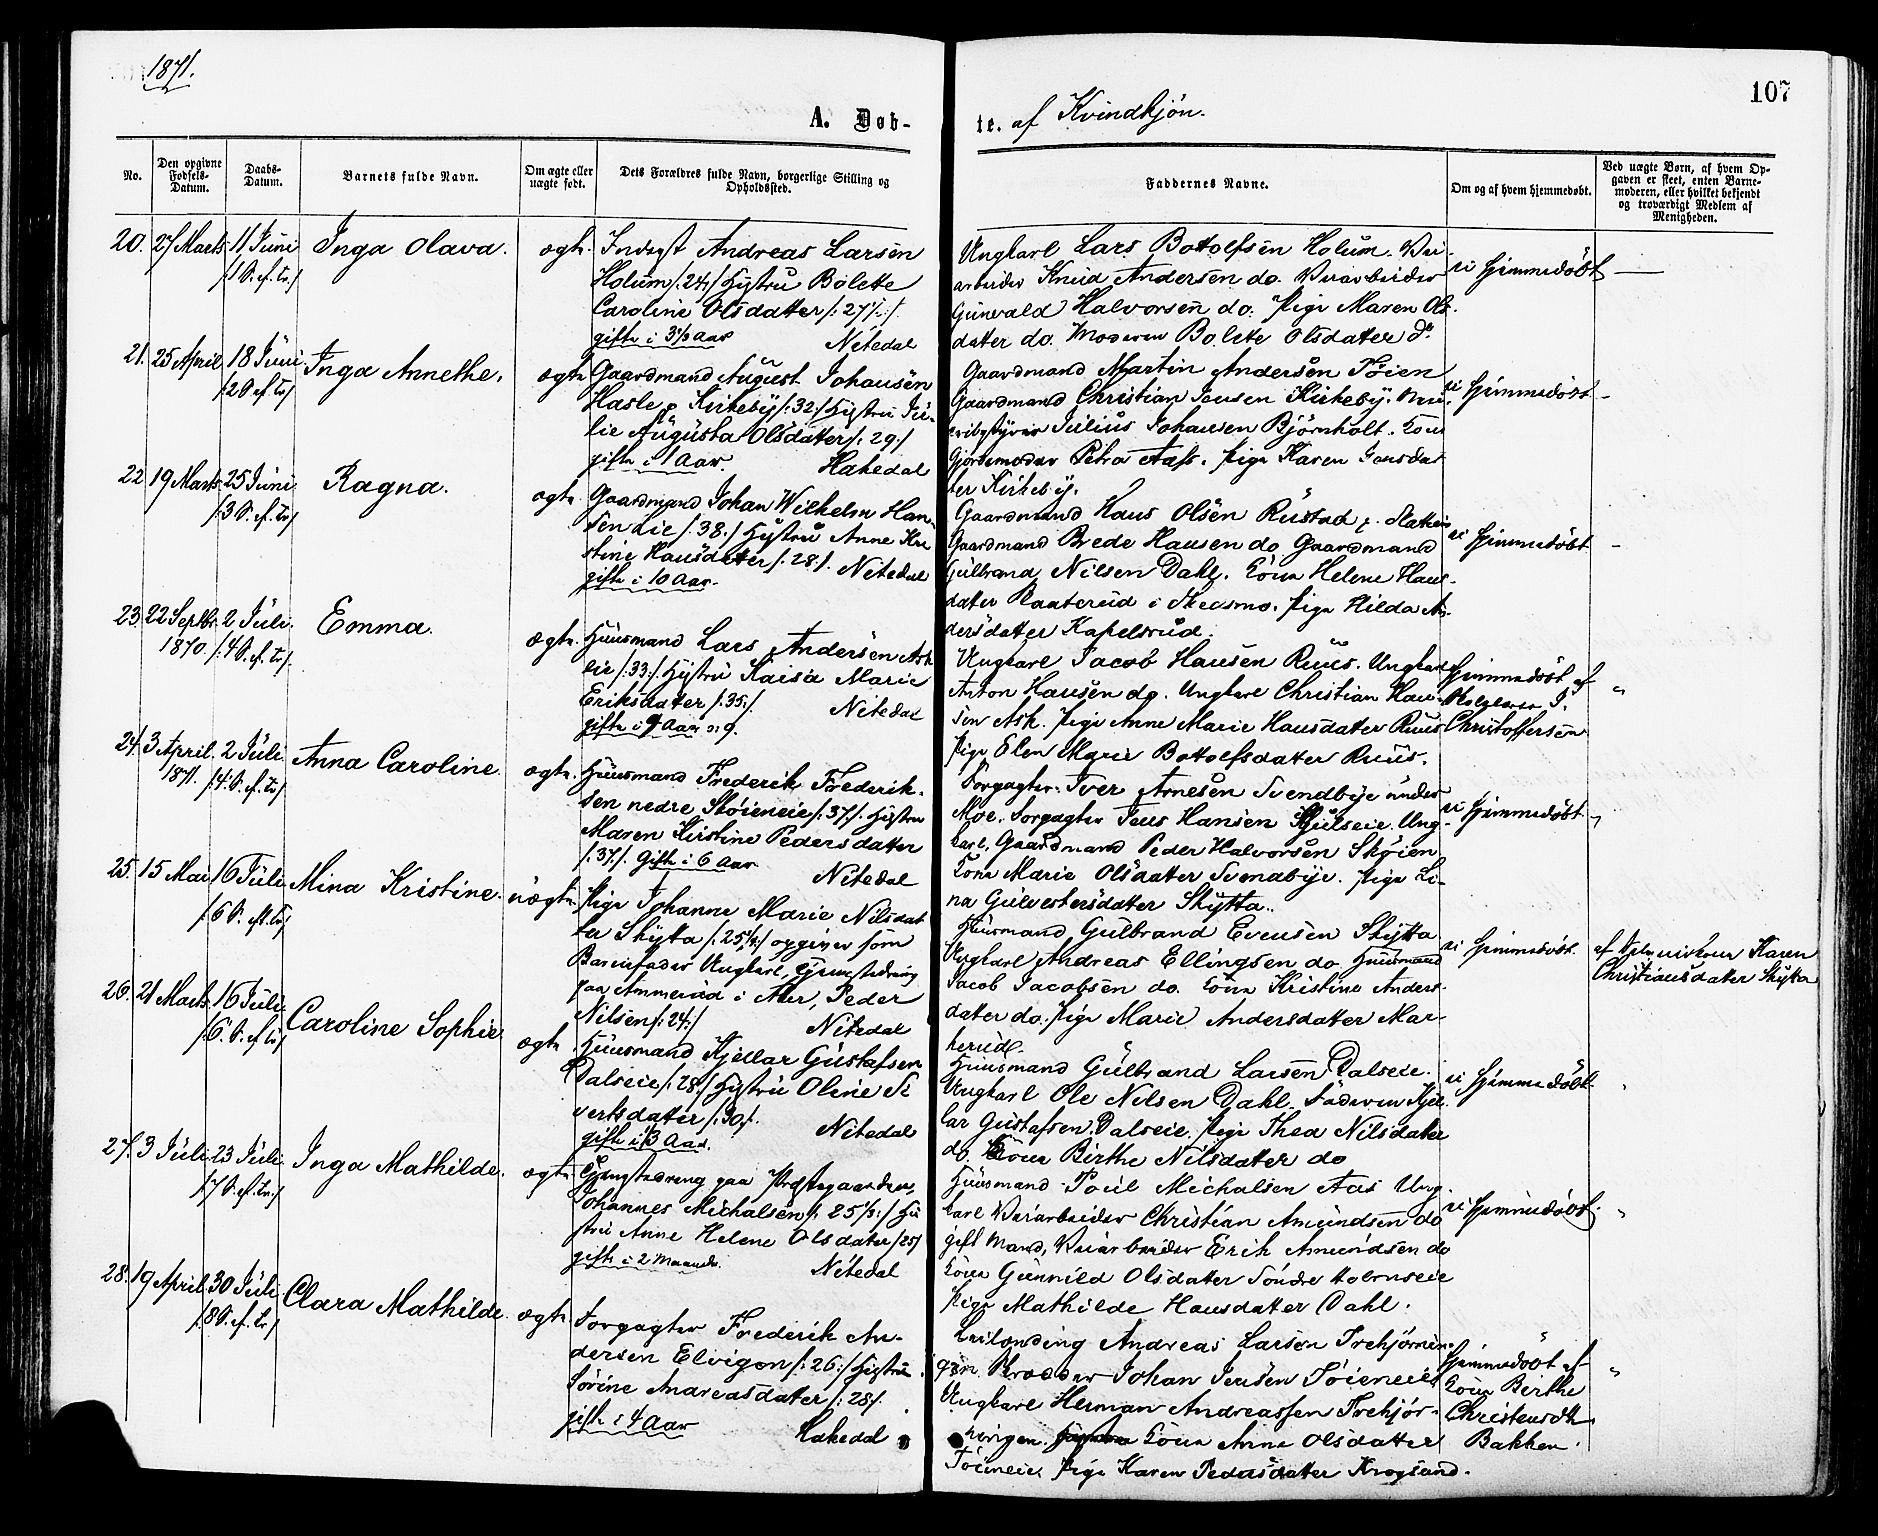 1871.
107
A. Døb-
te. af Kvindkjön.
No.
Den opgivne Fødsels-Datum.
Daabs-Datum.
Barnets fulde Navn.
Om ægte eller uægte født.
Dets Forældres fulde Navn, borgerlige Stilling og Opholdssted.
Faddernes Navne.
Om og af hvem hjemmedøbt.
Ved uægte Børn, af hvem Op-
gaven er skeet, enten Barne-
moderen, eller hvilket bekjendt
og troværdigt Medlem af
Menigheden.
20. 27 Marts 11 Juni Inga Olava. ægte.
/1 S. ef. tr./
Indergst Andreas Larsen
Holum /:24:/ Hustru Bolette
Caroline Olsdatter /:27½:/
gifte i 3½ Aar Nitedal
Ungkarl Lars Bottolfsen Holum. Vei-
arbeider Knud Andersen do. Veiarbeider
Gunvald Halvorsen do. Pige Maren Ols-
datter do. Moderen Bolette Olsdatter do
ei hjemmedöbt —
21. 25 April 18 Juni Inga Annethe. ægte
/2 S. ef. tr/
Gaardmand August Johansen
Hasle p. Kirkeby /:32:/ Hustru Ju-
lie Augusta Olsdatter /:29:/
gifte i 1 Aar. Hakedal
Gaardmand Martin Andersen Töien
Gaardmand Christian Jensen Kirkeby.
Julius Johansen Björnholt. Kone
Gjordemoder Petra Aas. Pige Karen Hansdat
ter Kirkeby.
ei hjemmedöbt -
22 19 Marts 25 Juni Ragna. ægte.
/3 S. ef. tr/
Gaardmand Johan Wilhelm Han-
sen Lie /:38:/ Hustru Anne Kri
stine Hansdatter /:28:/. Nitedal
gifte i 10 Aar.
Gaardmand Hans Olsen Rustad
Gaardmand Brede Hansen do Gaardmand
Gulbrand Nilsen Dahl. Kone Helene Hans-
datter i Skedsmo. Pige Hilda An-
dersdatter Kapelsrud.
ei hjemmedöbt -
23. 22 Septbr. 2 Juli. Emma. ægte.
1870. /:4 S. ef. tr/.
Huusmand Lars Andersen Ask
eie /:33:/ Hustru Kaisa Marie
Eriksdatter /:35:/. Nitedal
gifte i 9 Aar
Ungkarl Jacob Hansen Ruus. Ungkarl
Anton Hansen do. Ungkarl Christian Han-
sen Ask. Pige Anne Marie Hansdatter Ruus
Pige Elen Marie Bottolfsdatter Ruus.
Hjemmedöbt af
Christoffersen
"
24. 3 April. 2 Juli. Anna Caroline. ægte.
1871. /4 S. ef. tr/
Huusmand Frederik Frederik-
sen nedre Sköieneie /:37:/. Hustru
Maren Kirstine Pedersdatter
/:37:/. Gifte i 6 Aar Nitedal
Forpagter. Iver Arnesen Svendbye under
Moe. Forpagter Jens Hansen Ung-
karl, Gaardmand Peder Halvorsen Sköien
Kone Marie Olsdatter Svendbye. Pige Li-
na Gulvestersdatter Skytta.
ei hjemmedöbt.
"
25. 15 Mai 16 Juli. Mina Kristine. uægte.
/6 S. ef. tr/
Pige Johanne Marie Nilsdat
ter Skytta /:25¼:/ opgiver som
Barnefader Ungkarl, Gjenstedreng
paa Ammerud i Aker, Peder
Nilsen /:24:/ Nitedal
Huusmand Gulbrand Evensen Skytta
Ungkarl Andreas Ellingsen do. Huusmand
Jacob Jacobsen do. Kone Kristine Anders-
datter do. Pige Marie Andersdatter Mar-
kerud.
ei hjemmedöbt.
af Karen
Christiansdatter Skytta
26. 21 Marts. 16 Juli. Caroline Sophie. ægte.
/6. S. ef tr/
Huusmand Kjellar Gustafsen
Dalseie /:28:/ Hustru Oline Si
vertsdatter /:30:/. Nitedal
gifte i 3 Aar.
Huusmand Gulbrand Larsen Dalseie.
Ungkarl Ole Nilsen Dahl. Faderen Kjel-
lar Gustafsen, Dalseie. Pige Thea Nilsdatter
do. Kone Birthe Nilsdatter do
ei hjemmedöbt.
27. 3 Juli. 23 Juli. Inga Mathilde. ægte.
/7 S. ef. tr./
Gjenstedreng paa Præstegaarden,
Johannes Michalsen /:25½:/ Hu
stru Anne Helene Olsdatter /25/
gifte i 2 Maaneder. Nitedal
Huusmand Poul Michalsen Aas Ung-
karl Veiarbeider Christian Amundsen do
gift Mand, Veiarbeider Erik Amundsen do
Kone Gunnild Olsdatter Söndre
Pige Mathilde Hansdatter Dahl.
ei hjemmedöbt. "
28. 19 April. 30 Juli. Clara Mathilde. ægte.
/8 S. ef. tr/
Forpagter Frederik An-
dersen Elvigen /:26:/ Hustru
Sörine Andreasdatter /:28/.
gifte i 4 Aar Hakedal
Leilænding Andreas Larsen Trehjörnin-
gen. Johan Jensen Töieneie
Ungkarl Herman Andreassen Trehjör-
ningen. Kone Anne Olsdatter
Töieneie. Pige Karen Pedersdatter Krogsund.
Hjemmedöbt af
Kone Birthe
Christensdtr
Bakken.
"